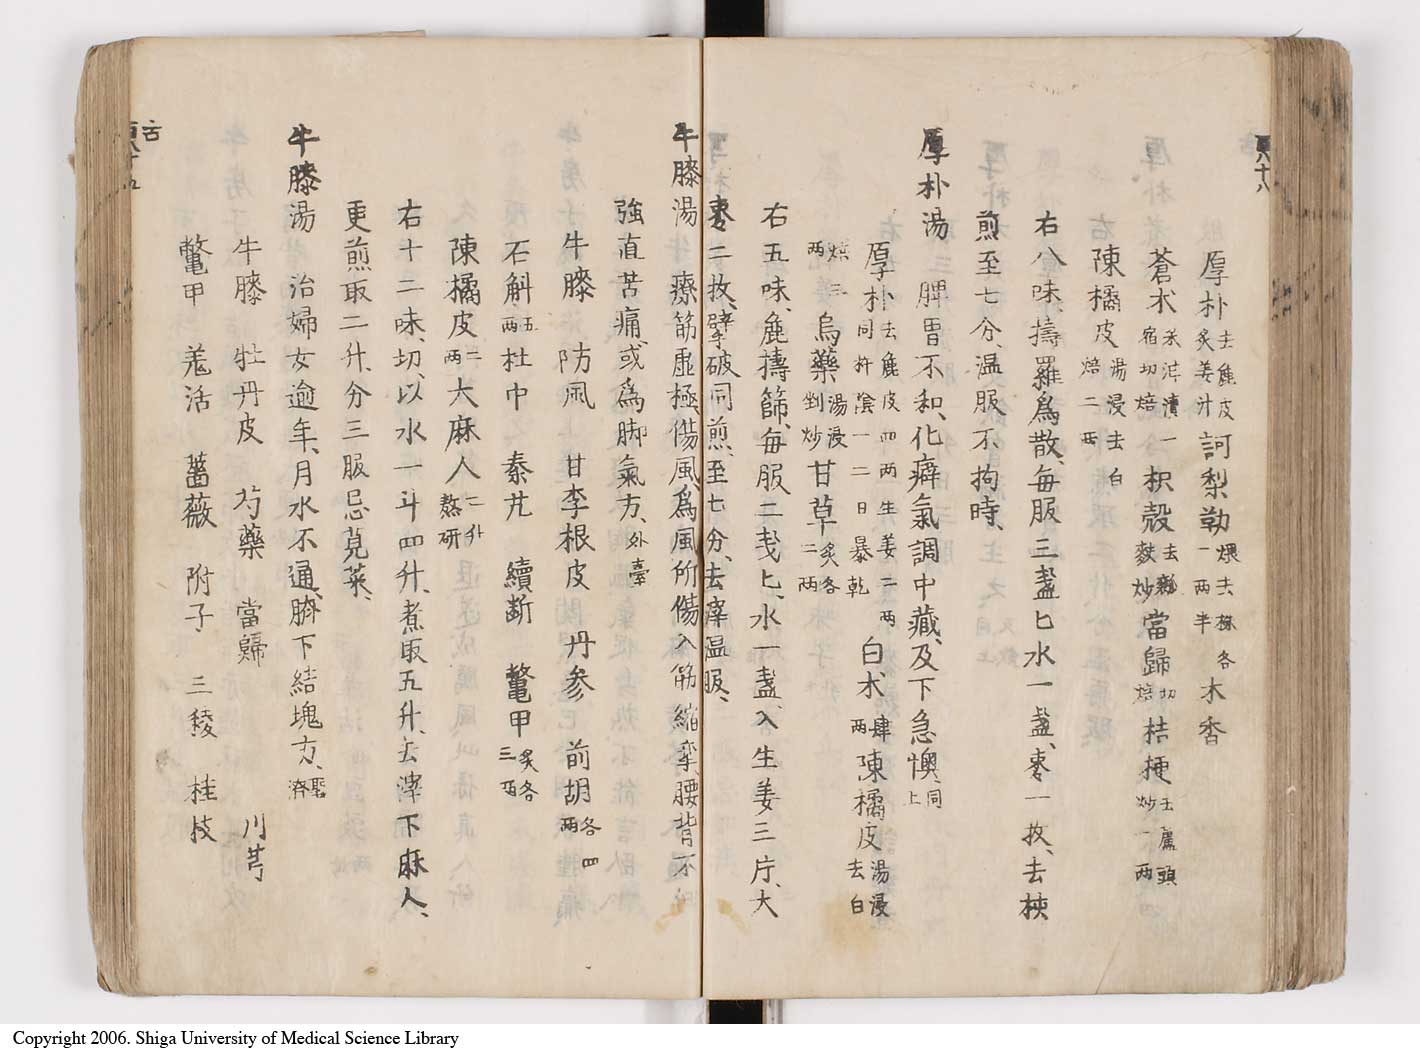 厚朴去麁皮炙姜汁訶梨勒煨去核各一両半木香
蒼朮米泔漬一宿切焙枳殻去穰麩炒當歸切焙桔梗去蘆頭炒一両
陳橘皮湯浸去白焙二両
右八味擣羅爲散、毎服三盞匕水一盞、棗一枚、去核
煎至七分、温服不拘時、
厚朴湯　脾胃不和、化癖氣調中藏、及下急懊、同上
厚朴去麁皮四両生姜二両同杵陰一二日暴乾白朮肆両陳橘皮湯浸去白
焙三両烏藥湯浸剉炒甘草炙各二両
右五味、麁擣篩、毎服二戔匕、水一盞、入生姜三片、大
棗二枚、擘破同煎、至七分、去滓温服、
牛膝湯　療筋虚極、傷風、爲風所傷入筋縮攣、腰背不
強直苦痛、或爲脚氣方、外臺
牛膝　防風　甘李根皮　丹参　前胡各四両
石斛五両杜中　秦艽　續断　鼈甲炙各三両
陳橘皮二両大麻人二升熬研
右十二味、切、以水一斗四升、煮取五升、去滓下麻人、
更煎取二升、分三服忌莧菜、
牛膝湯　治婦女逾年、月水不通、臍下結塊方、聖濟
牛膝　牡丹皮　芍藥　當歸　川芎
鼈甲　羌活　薔薇　附子　三稜　桂枝
Copyright 2006. Shiga University of Medical Science Library